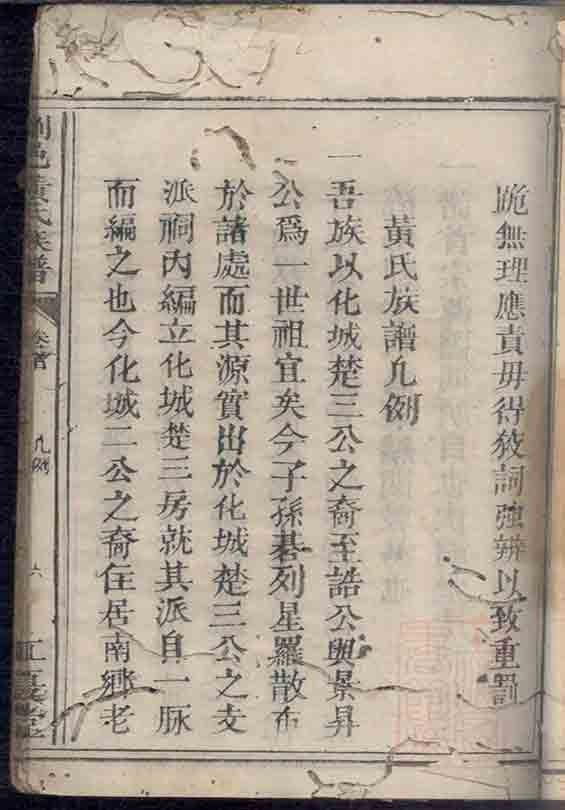 跪無理應責毋得狡詞強辨以致重罰
黃氏族譜凡例
一吾族以化城楚三公之裔至誥公與景昇
公爲一世祖宜矣今子孫碁列星羅散布
於諸處而其源實出於化城楚三公之支
派祠內編立化城楚三房就其派自一脉
而編之也今化城二公之裔住居南鄉老
邑黃氏族譜
卷首
凡例
六